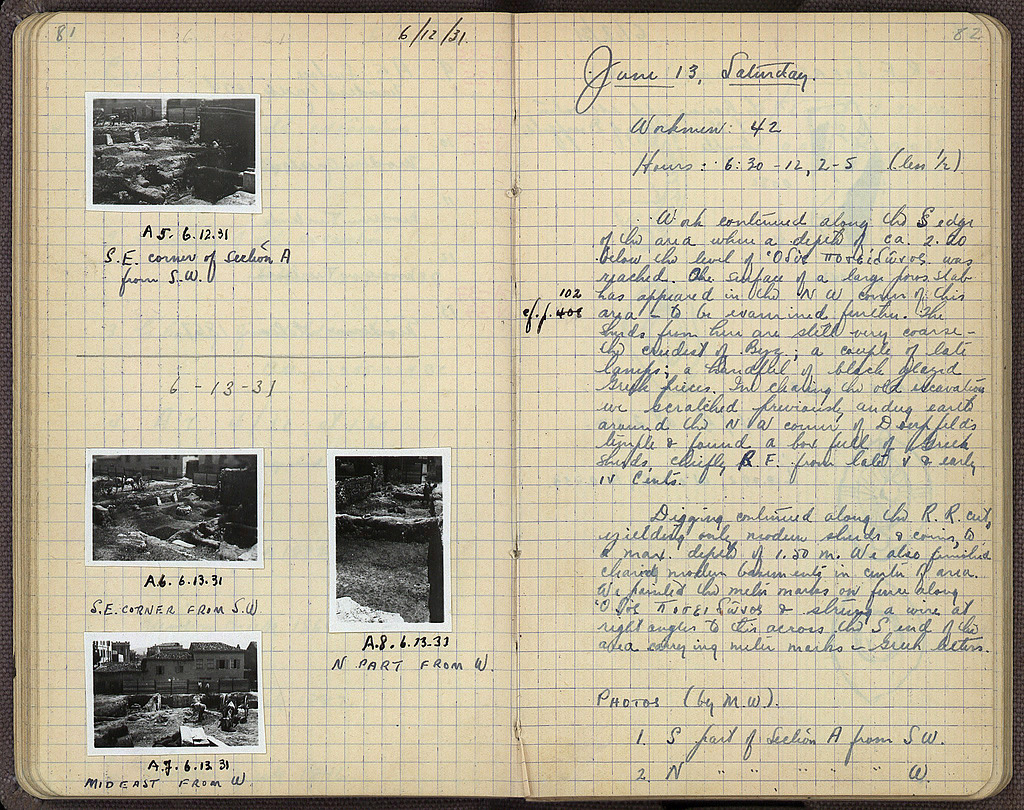 81
6/12/31.
A 5. 6.12.31
S.E. corner of Section A
from S.W.
6-13-31
A.6. 6.13.31
S.E. CORNER FROM S.W
A.8. 6.13.31
N PART FROM W.
A.7. 6.13.31
MID EAST FROM W.
82
June 13, Saturday.
Workmen: 42
Hours: 6:30-12, 2-5 (less 1/2)
Work continued along the S edge
of the area where a depth of ca. 2.20
below the level of Ὁδὸς Ποσειδῶνος was
reached. The surface of a large poros slab
has appeared in the N W corner of this
102
cf. p. 408
area - to be examined further. The
sherds from here are still very coarse -
the crudest of Byz.; a couple of late
lamps; a handful of black glazed
Greek pieces. In clearing the old excavation
we scratched previously undug earth
around the N W corner of Doerpfeld's
temple & found a box full of Greek
sherds, chiefly R.F. from late V & early
IV Cents.
Digging continued along the R.R. cut,
yielding only modern sherds & coins, to
a max. depth of 1.50 m. We also finished
clearing modern basements in center of area.
We painted the meter marks on fence along
Ὁδὸς Ποσειδῶνος & strung a wire at
right angles to this across the S end of the
area carrying meter marks & Greek letters.
PHOTOS (by M.W).
1. S part of Section A from SW.
2. N " " " " " W.